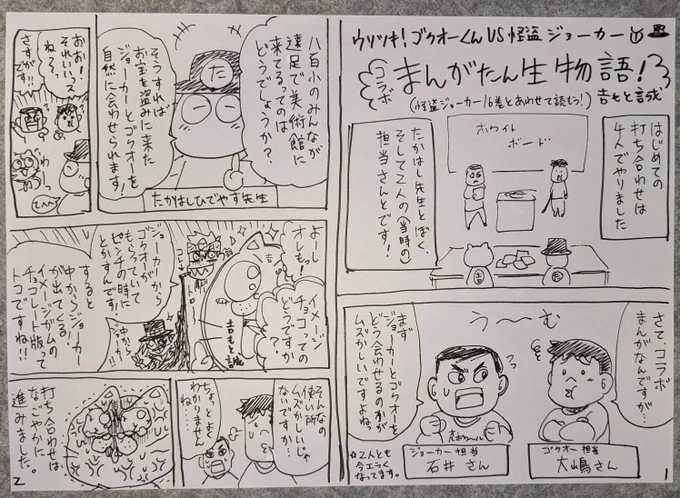 ウソツキ!ゴクオーくんVS怪盗ジョーカー
コラボ
まんがたん生物語!
(怪盗ジョーカー16巻とあわせて読もう!)
吉もと誠
はじめての
打ち合わせは
4人でやりました
ホワイト
ボード
たかはし先生とぼく、
そして2人の(当時の)
担当さんとです!
吉
た
さて、コラボ
まんがなんですが…
う~む
まず
ジョーカーとゴクオーを
どう会わせるのかが
ムズかしいですよね。
ゴクオー担当
大嶋さん
ジョーカー担当
石井さん
☆2人とも
今エラく
なってます。
1
八百小のみんなが
遠足で美術館に
来てるってのは
どうでしょうか?
た
そうすれば
お宝を盗みに来た
ジョーカーとゴクオーを
自然に会わせられます!
たかはしひでやす先生
おお!
それいいっス
ね~、
さすがです!!
わっ
てへへ
よし
オレも!
イメージ
チョコっての
どうですか
?
吉もと誠
ジョーカーから
ゴクオーが
もらっていて
ピンチの時に
とかすんです!
すると
中からジョーカー
が出てくる
イメージガムの
チョコレート版って
トコですね!!
そんなの
使い所
ムズかしいじゃ
ないですか…
ちょっとよく
わかりません
ね…
打ち合わせは
なごやかに
進みました。
2